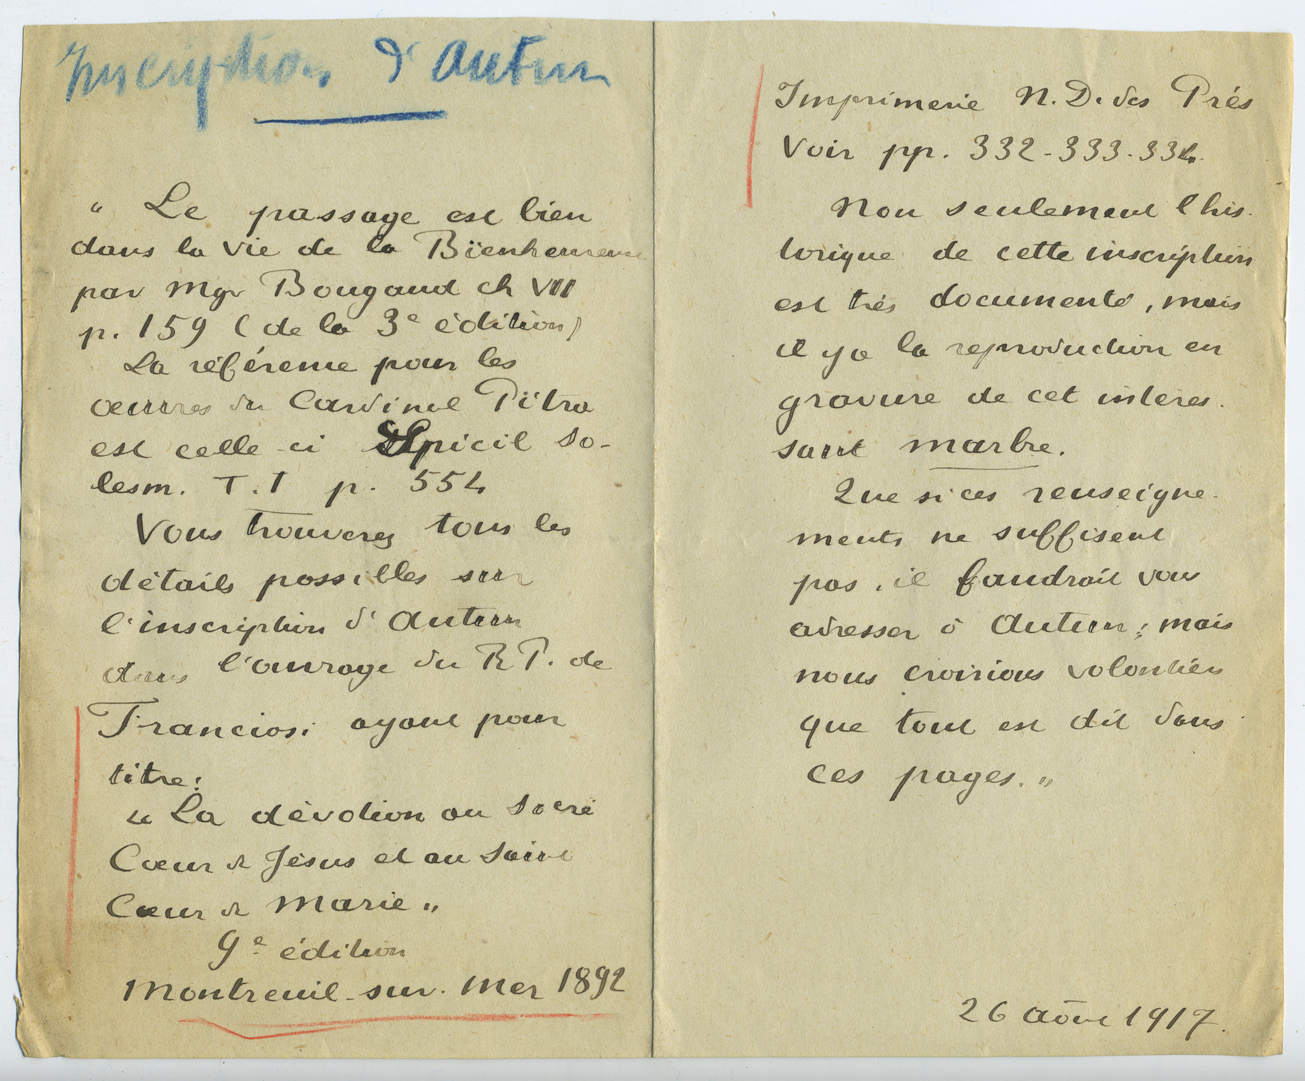 Inscription d'Autun
" Le passage est bien
dans la vie de la Bienheureuse
par Mgr Bougaud ch VII
p. 159 ( de la 3e édition)
La référence pour les
œuvres du Cardinal Pitra
est celle-ci Spicil So-
lesm. T. I p. 554
Vous trouverez tous les
détails possibles sur
l'inscription d'Autun
dans l'ouvrage du R.P. de
Franciosi ayant pour
titre:
" La dévotion au Sacré
Cœur de Jésus et au Saint
Cœur de Marie "
9e édition
Montreuil-sur-Mer 1892
Imprimerie N. D. des Prés
Voir pp. 332-333-334.
Non seulement l'his-
torique de cette inscription
est très documenté, mais
il y a la reproduction en
gravure de cet intéres-
sant marbre.
Que si ces renseigne-
ments ne suffisent
pas, il faudrait vous
adresser à Autun; mais
nous croirions volontiers
que tout est dit dans
ces pages. "
26 août 1917.